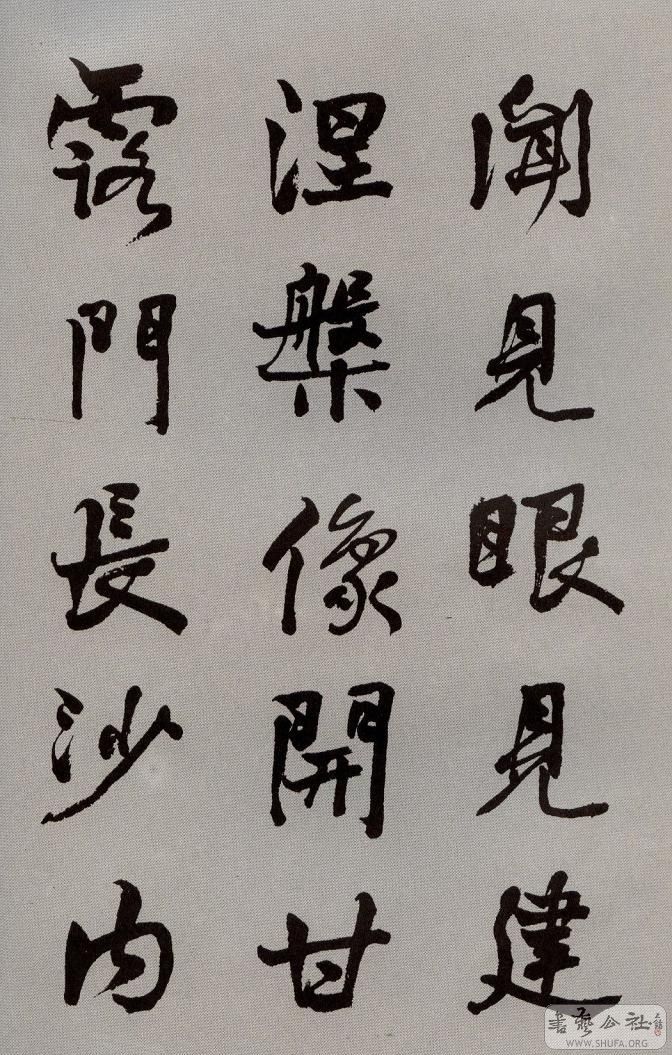 聞見眼見建
涅槃像開甘
露門長沙内
書藝公社
WWW.SHUFA.ORG